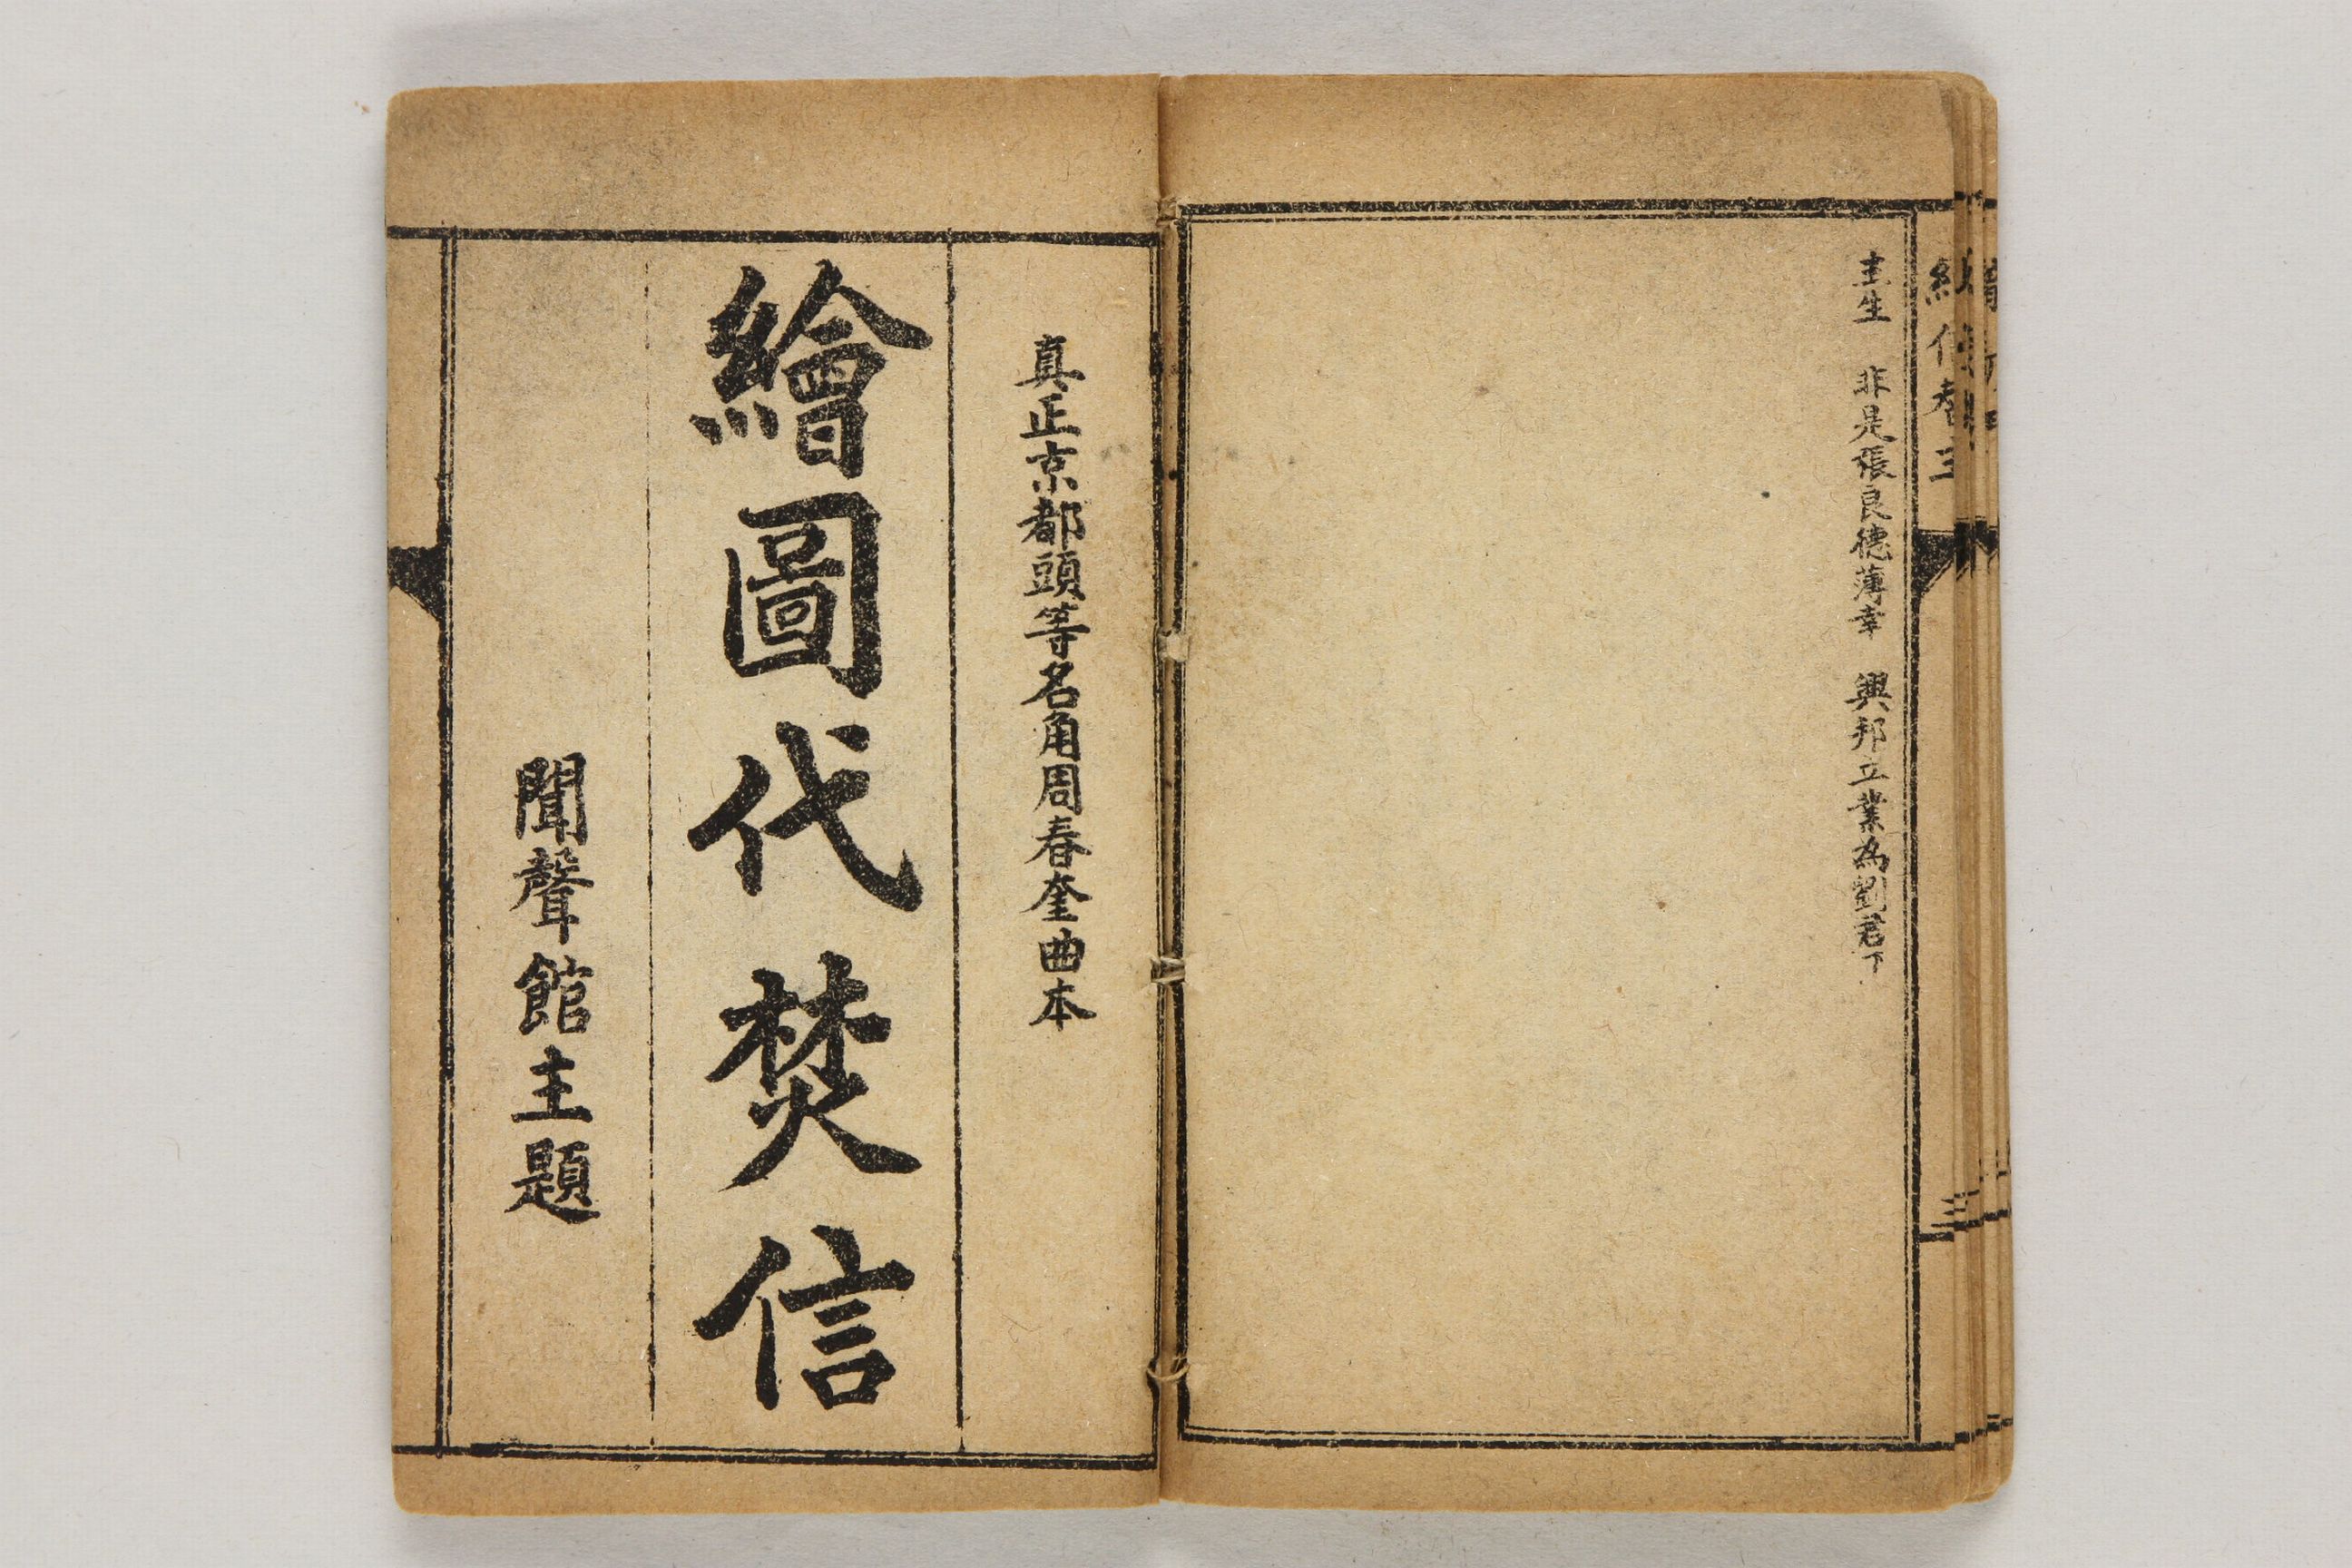 主生　非是張良德薄幸　興邦立業為劉君下
真正京都頭等名角周春奎曲本
繪圖代焚信
聞聲館主題